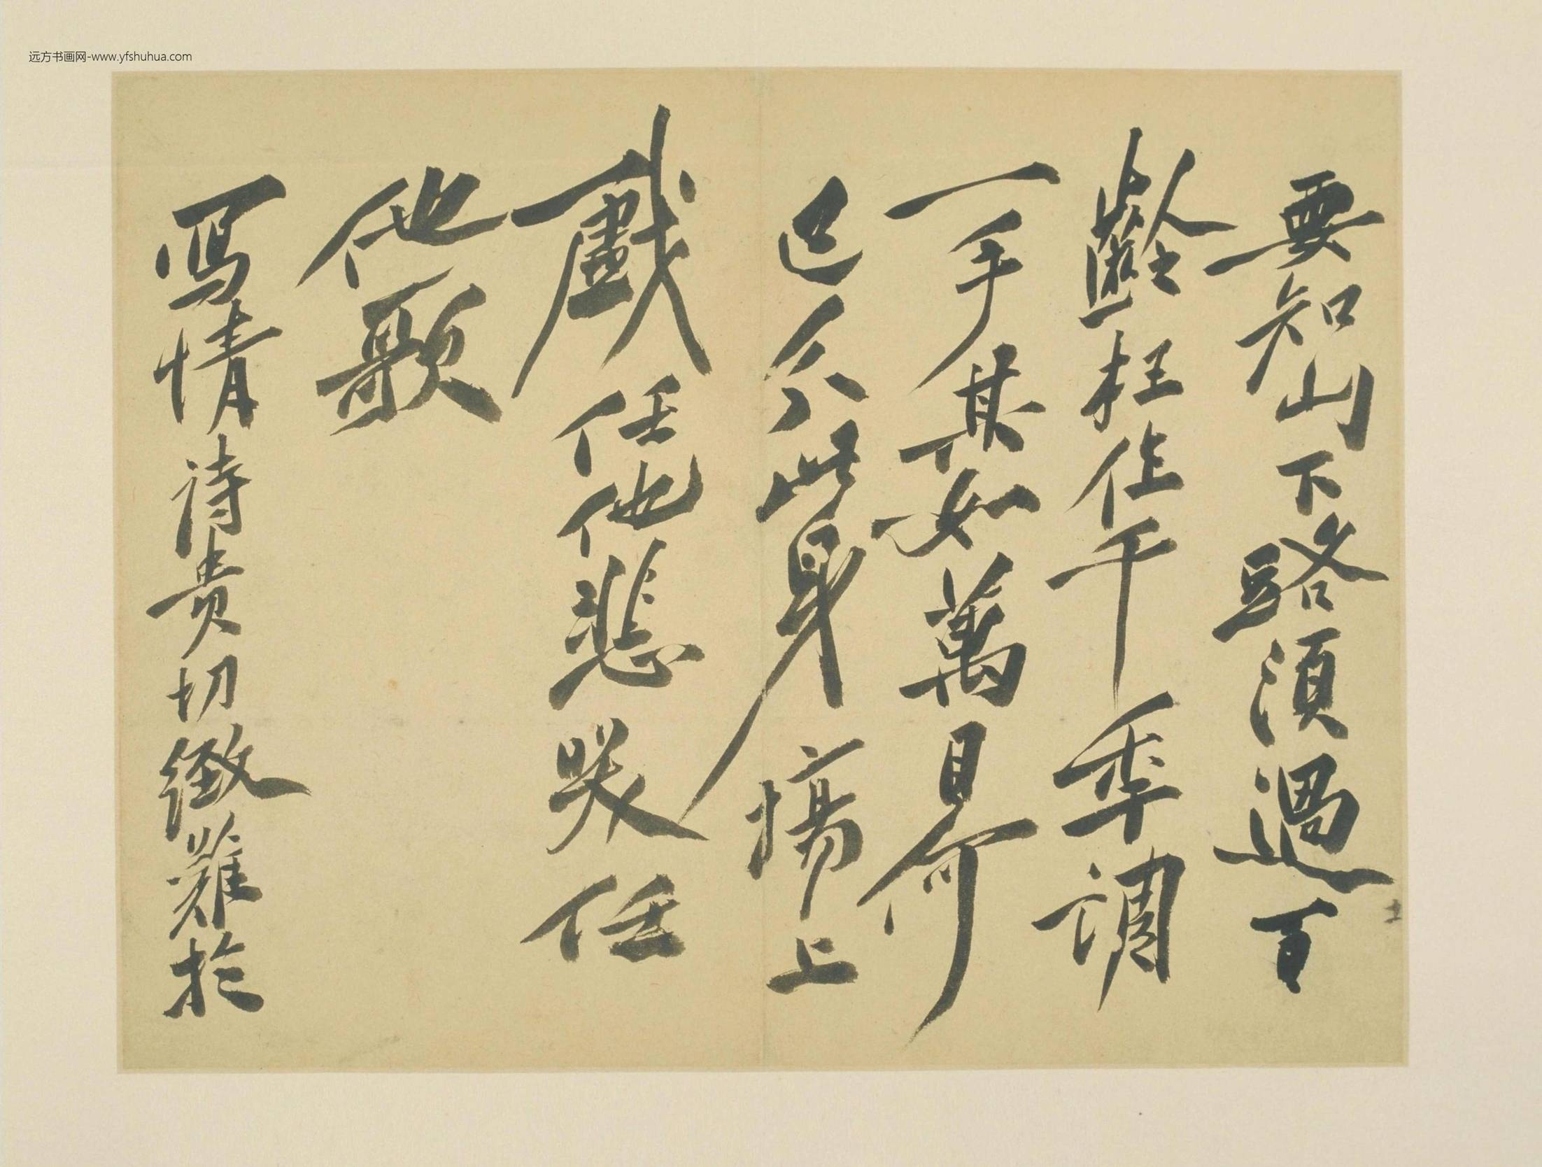 远方书画网-www.yfshuhua.com
要知山下路須過百
齡枉作千年調
一手其如萬目何
已公此身場上
戲任他悲笑任
他歌
寫情詩貴切緻難於